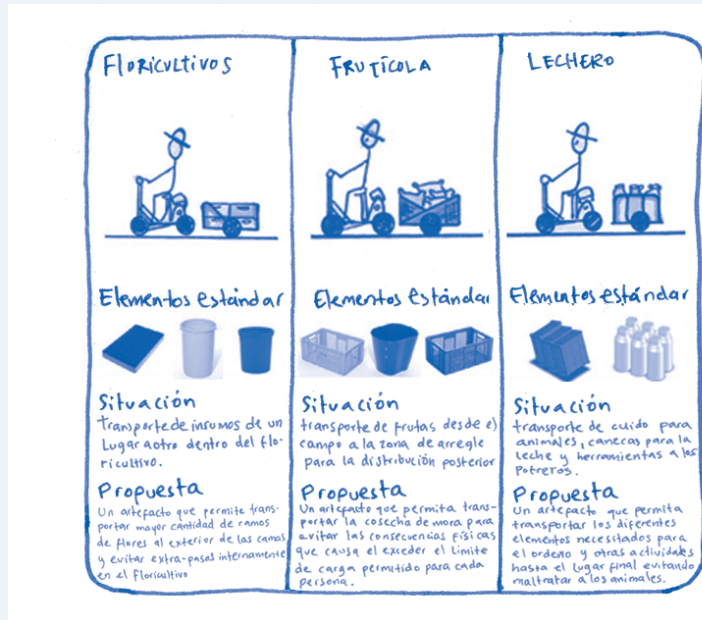 FLORICULTIVOS
Elementos estándar
Situación
Transporte de insumos de un
Lugar a otro dentro del flo-
ricultivo.
Propuesta
Un artefacto que permite trans-
portar mayor cantidad de ramos
de flores al exterior de las camas
y evitar extra-pasos internamente
en el floricultivo
FRUTÍCOLA
Elementos estándar
Situación
transporte de frutas desde el
campo a la zona de arregle
para la distribución posterior
Propuesta
Un artefacto que permita trans-
portar la cosecha de mora para
evitar las consecuencias físicas
que causa el exceder el límite
de carga permitido para cada
persona.
LECHERO
Elementos estándar
Situación
transporte de cuido para
animales, canecas para la
leche y herramientas a los
Potreros.
Propuesta
Un artefacto que permita
transportar los diferentes
elementos necesitados para
el ordeño y otras actividades
hasta el lugar final evitando
maltratar a los animales.